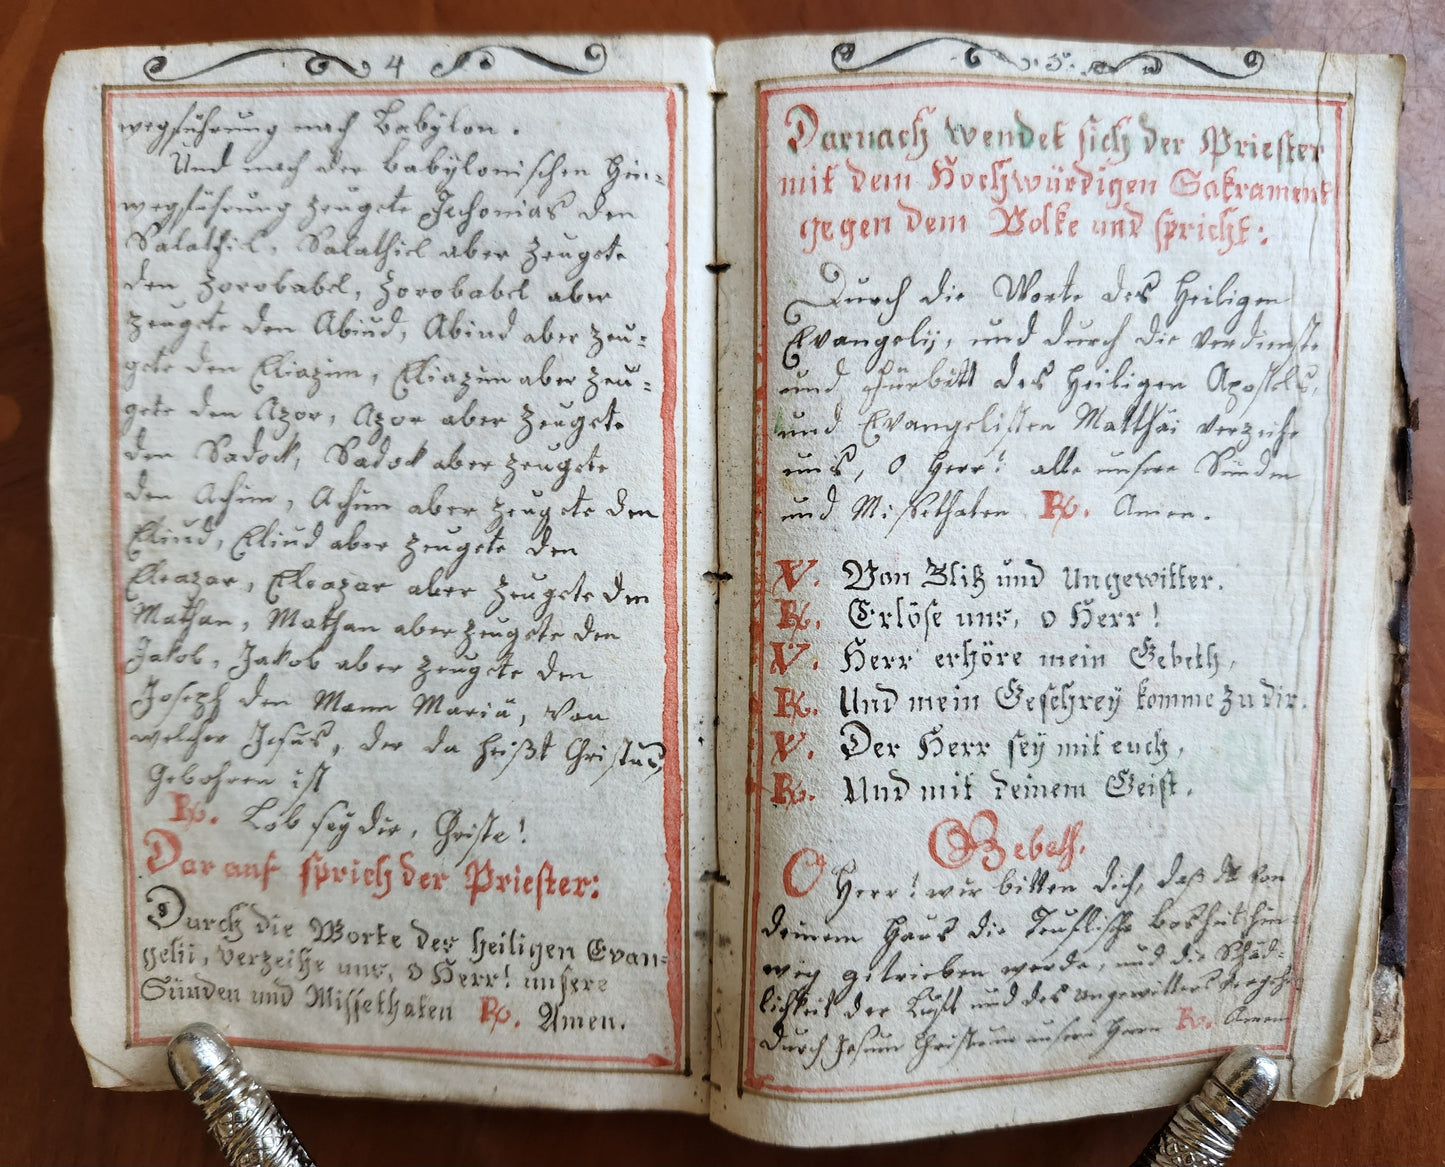 4
wegführung nach Babÿlon.
Und nach der babÿlonischen Hin-
wegführung zeugete Jechonias den
Salathiel, Salathiel aber zeugete
den Zorobabel, Zorobabel aber
zeugete den Abiud, Abiud aber zeu-
gete den Eliazim, Eliazim aber zeu-
gete den Azor, Azor aber zeugete
den Sadock, Sadock aber zeugete
den Achim, Achim aber zeugete den
Eliud, Eliud aber zeugete den
Eleazar, Eleazar aber zeugete den
Mathan, Mathan aber zeugete den
Jakob, Jakob aber zeugete den
Joseph den Mann Mariä, von
welcher Jesus, der da heißt Christus
Gebohren ist
R. Lob seÿ dir, Christe!
Darauf sprich der Priester:
Durch die Worte des heiligen Evan-
gelii, verzeihe uns, o Herr! unsere
Sünden und Missethaten R. Amen.
5.
Darnach wendet sich der Priester
mit dem Hochwürdigen Sakrament
gegen dem Volke und spricht:
Durch die Worte des heiligen
Evangelij, und durch die verdienste
und Fürbitt des heiligen Apostels,
und Evangelisten Matthäi verzeihe
uns, o Herr! alle unsere Sünden
und Missethaten R. Amen.
V. Von Bliß und Ungewitter.
R. Erlöse uns, o Herr!
V. Herr erhöre mein Gebeth,
R. Und mein Geschreÿ komme zu dir.
V. Der Herr seÿ mit euch,
R. Und mit deinem Geist.
Gebeth.
O Herr! wir bitten dich, daß von
deinem Haus die Teuflische Bosheit hin-
weg getrieben werde, und die Schäd-
lichkeit der Luft und des ungewitters
durch Jesum Christum unsern Herrn R. Amen